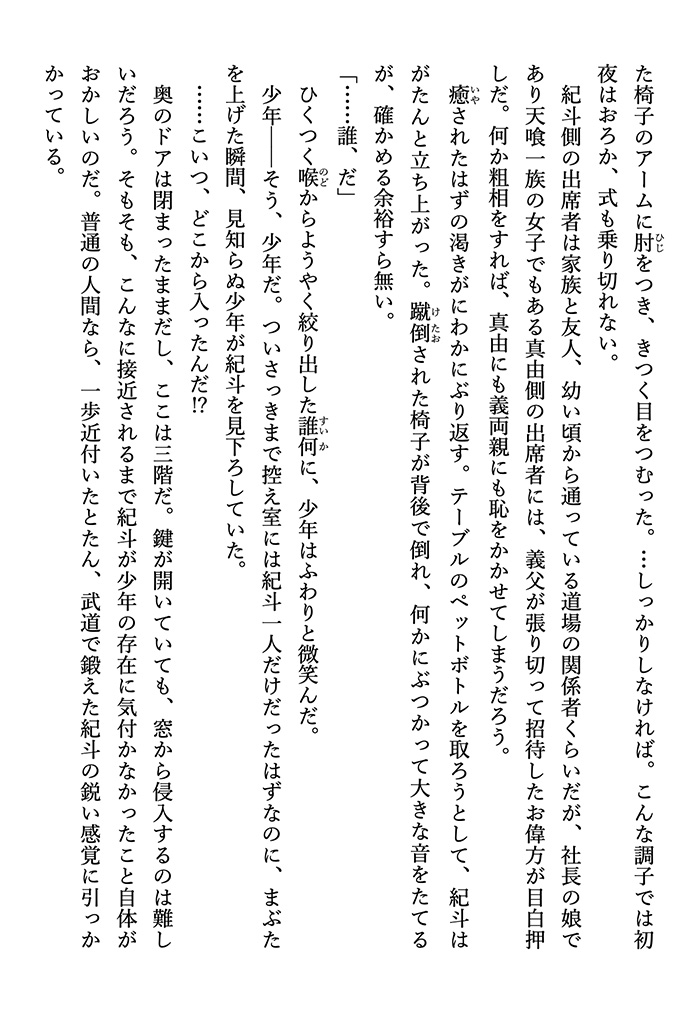 た椅子のアームに肘をつき、きつく目をつむった。…しっかりしなければ。こんな調子では初
夜はおろか、式も乗り切れない。
紀斗側の出席者は家族と友人、幼い頃から通っている道場の関係者くらいだが、社長の娘で
あり天喰一族の女子でもある真由側の出席者には、義父が張り切って招待したお偉方が目白押
しだ。何か粗相をすれば、真由にも義両親にも恥をかかせてしまうだろう。
癒されたはずの渇きがにわかにぶり返す。テーブルのペットボトルを取ろうとして、紀斗は
がたんと立ち上がった。蹴倒された椅子が背後で倒れ、何かにぶつかって大きな音をたてる
が、確かめる余裕すら無い。
「……誰、だ」
ひくつく喉からようやく絞り出した誰何に、少年はふわりと微笑んだ。
少年――そう、少年だ。ついさっきまで控え室には紀斗一人だけだったはずなのに、まぶた
を上げた瞬間、見知らぬ少年が紀斗を見下ろしていた。
……こいつ、どこから入ったんだ!?
奥のドアは閉まったままだし、ここは三階だ。鍵が開いていても、窓から侵入するのは難し
いだろう。そもそも、こんなに接近されるまで紀斗が少年の存在に気付かなかったこと自体が
おかしいのだ。普通の人間なら、一歩近付いたとたん、武道で鍛えた紀斗の鋭い感覚に引っか
かっている。